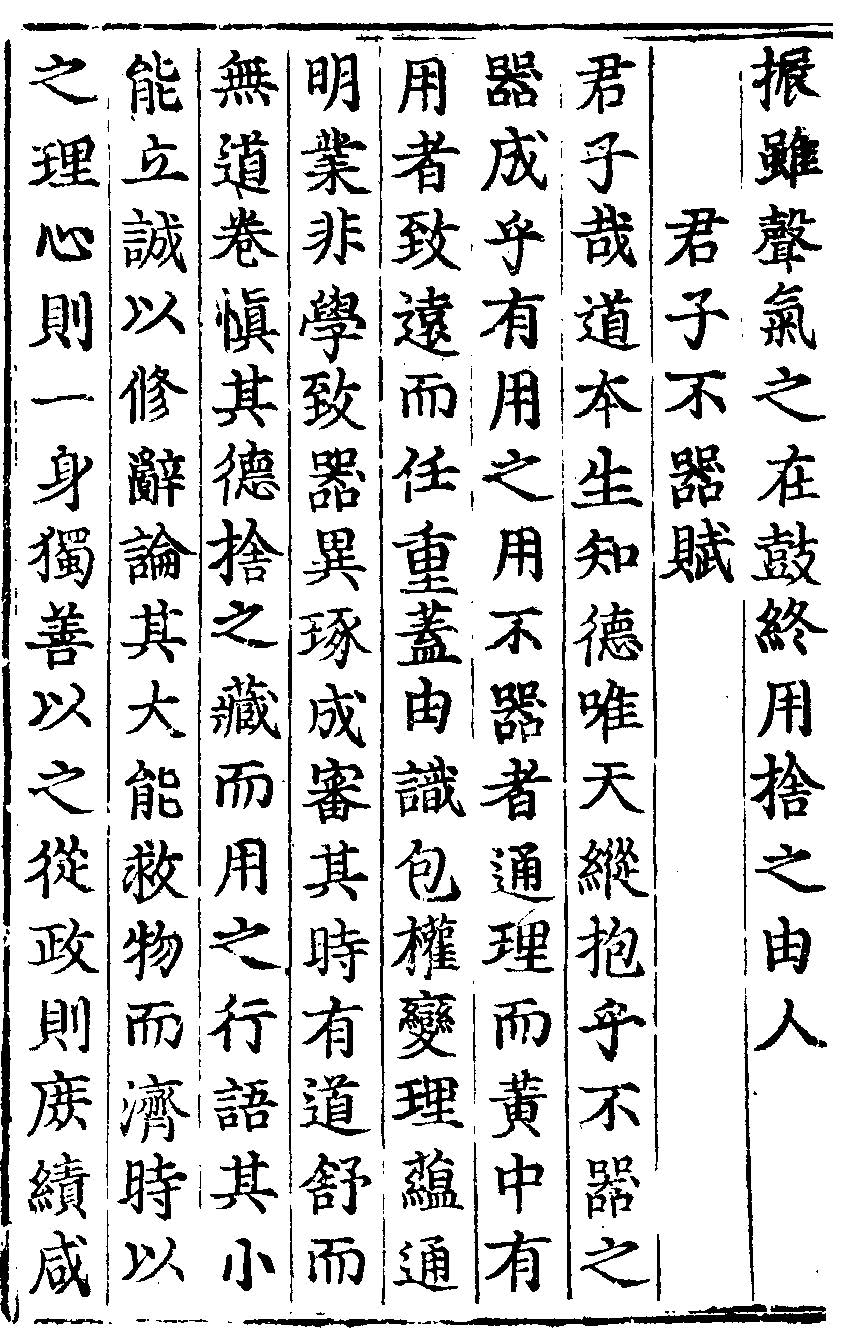 振雖聲氣之在鼓終用捨之由人
君子不器賦
君子哉道本生知德唯天縱抱乎不器之
器成乎有用之用不器者通理而黃中有
用者致遠而任重蓋由識包權變理蘊通
明業非學致器異琢成審其時有道舒而
無道卷慎其德捨之藏而用之行語其小
能立誠以修辭論其大能救物而濟時以
之理心則一身獨善以之從政則庶績咸